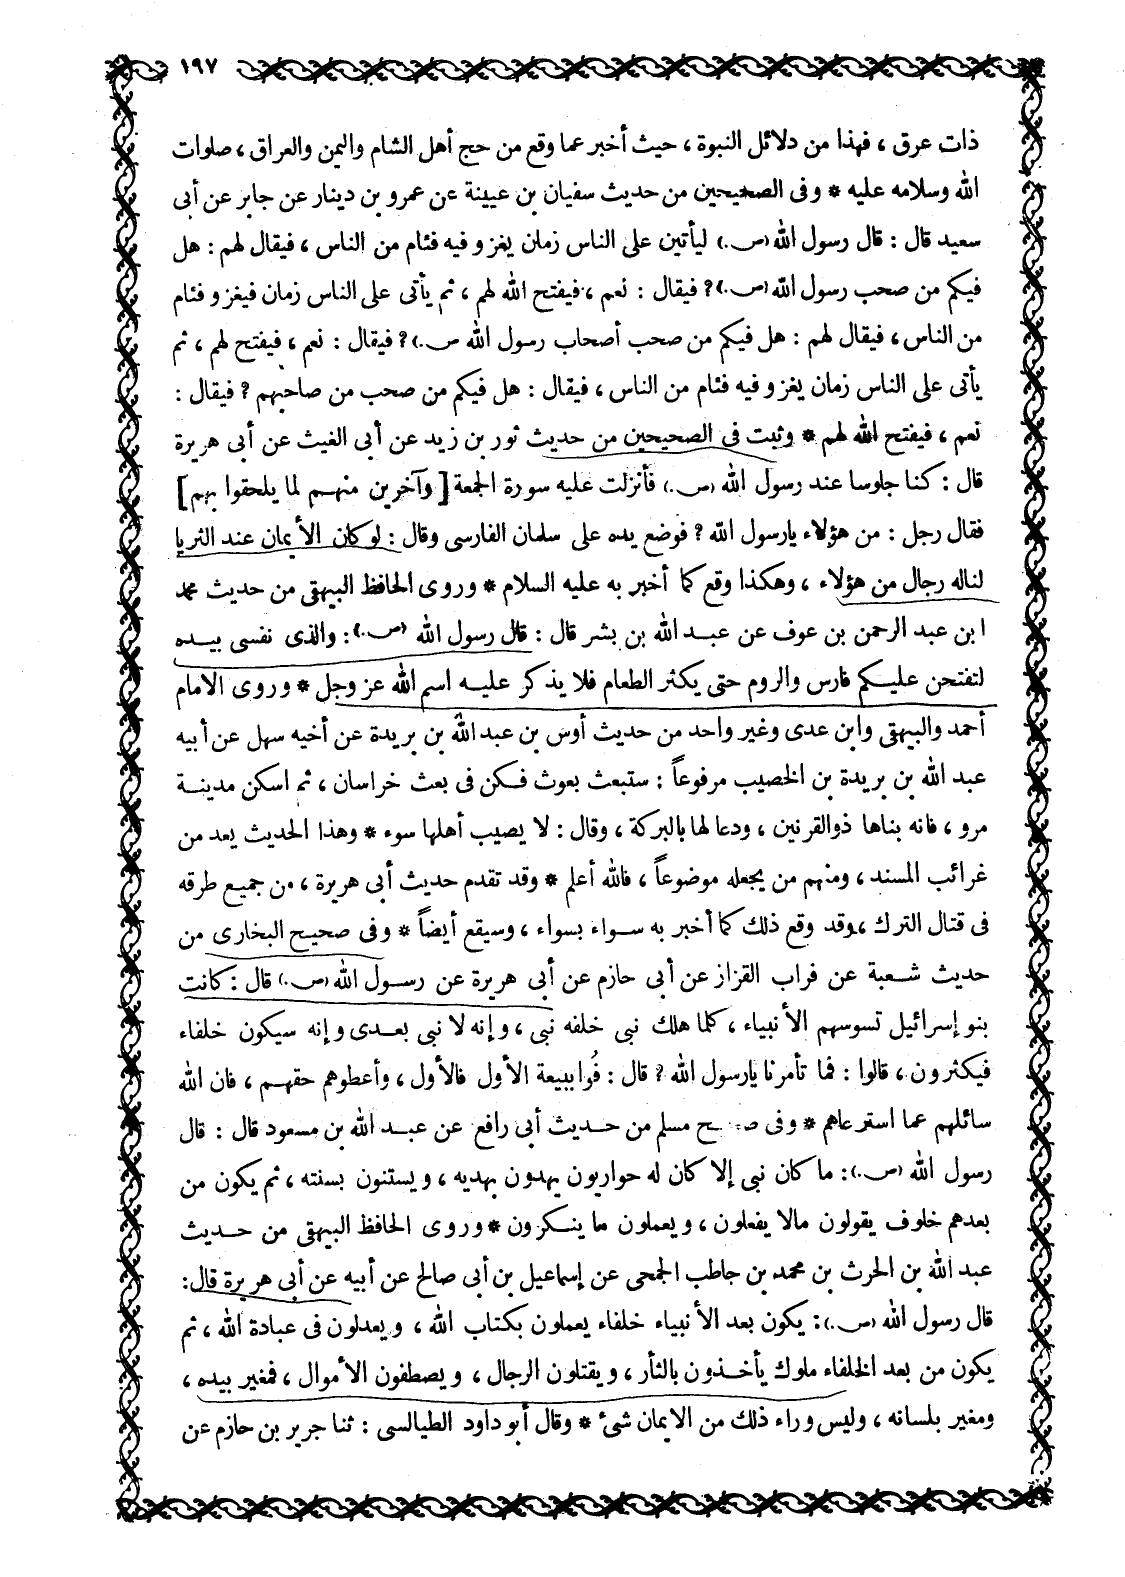 ١٩٧
ذات عرق ، فهذا من دلائل النبوة ، حيث أخبر عما وقع من حج أهل الشام واليمن والعراق ، صلوات
الله وسلامه عليه * وفى الصحيحين من حديث سفيان بن عيينة عن عمرو بن دينار عن جابر عن أبى
سعيد قال : قال رسول الله (ص.) ليأتين على الناس زمان يغزو فيه فئام من الناس ، فيقال لهم : هل
فيكم من صحب رسول الله (ص.) ؟ فيقال : نعم ، فيفتح الله لهم ، ثم يأتى على الناس زمان فيغزو فئام
من الناس ، فيقال لهم : هل فيكم من صحب أصحاب رسول الله ص.) ؟ فيقال : نعم ، فيفتح لهم ، ثم
يأتى على الناس زمان يغزو فيه فئام من الناس ، فيقال : هل فيكم من صحب من صاحبهم ؟ فيقال :
نعم ، فيفتح الله لهم * وثبت فى الصحيحين من حديث ثور بن زيد عن أبى الغيث عن أبى هريرة
قال : كنا جلوسا عند رسول الله (ص.) فأنزلت عليه سورة الجمعة [ وآخرين منهم لما يلحقوا بهم ]
فقال رجل : من هؤلاء يارسول الله ؟ فوضع يده على سلمان الفارسى وقال : لو كان الأيمان عند الثريا
لناله رجال من هؤلاء ، وهكذا وقع كما أخبر به عليه السلام * وروى الحافظ البيهقى من حديث محمد
ابن عبد الرحمن بن عوف عن عبد الله بن بشر قال : قال رسول الله (ص.) : والذى نفسى بيده
لتفتحن عليكم فارس والروم حتى يكثر الطعام فلا يذكر عليه اسم الله عز وجل * وروى الامام
أحمد والبيهقى وابن عدى وغير واحد من حديث أوس بن عبد الله بن بريدة عن أخيه سهل عن أبيه
عبد الله بن بريدة بن الخصيب مرفوعاً : ستبعث بعوث فكن فى بعث خراسان ، ثم اسكن مدينة
مرو ، فانه بناها ذوالقرنين ، ودعا لها بالبركة ، وقال : لا يصيب أهلها سوء * وهذا الحديث يعد من
غرائب المسند ، ومنهم من يجعله موضوعاً ، فالله أعلم * وقد تقدم حديث أبى هريرة ، من جميع طرقه
فى قتال الترك ، وقد وقع ذلك كما أخبر به سواء بسواء ، وسيقع أيضاً * وفى صحيح البخارى من
حديث شعبة عن فرات القزاز عن أبى حازم عن أبى هريرة عن رسول الله (ص.) قال : كانت
بنو إسرائيل تسوسهم الأنبياء ، كلما هلك نبى خلفه نبى ، وإنه لا نبى بعدى وإنه سيكون خلفاء
فيكثرون ، قالوا : فما تأمرنا يارسول الله ؟ قال : فُوا ببيعة الأول فالأول ، وأعطوهم حقهم ، فان الله
سائلهم عما استرعاهم * وفى مسلم من حديث أبى رافع عن عبد الله بن مسعود قال : قال
رسول الله (ص.) : ما كان نبى إلا كان له حواريون يهدون بهديه ، ويستنون بسنته ، ثم يكون من
بعدهم خلوف يقولون مالا يفعلون ، ويعملون ما ينكرون * وروى الحافظ البيهقى من حديث
عبد الله بن الحرث بن محمد بن جاطب الجمحى عن إسماعيل بن أبى صالح عن أبيه عن أبى هريرة قال :
قال رسول الله (ص.) : يكون بعد الأنبياء خلفاء يعملون بكتاب الله ، ويعدلون فى عبادة الله ، ثم
يكون من بعد الخلفاء ملوك يأخذون بالثأر ، ويقتلون الرجال ، ويصطفون الأموال ، فمغير بيده ،
ومغير بلسانه ، وليس وراء ذلك من الايمان شئ * وقال أبو داود الطيالسى : ثنا جرير بن حازم عن